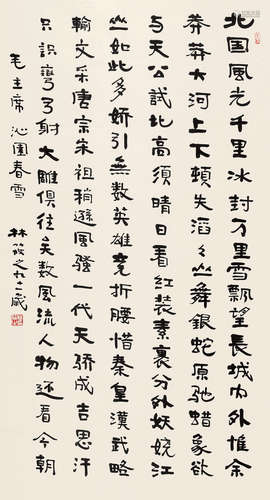 北国風光千里冰封万里雪飄望長城内外惟余
莽莽大河上下頓失滔々山舞銀蛇原馳蜡象欲
与天公試比高須晴日看红装素裹分外妖娆江
山如此多娇引無数英雄竞折腰惜秦皇漢武略
輸文采唐宗宋祖稍遜風骚一代天骄成吉思汗
只识彎弓射大雕俱往矣数風流人物还看今朝
毛主席 沁園春雪 林筱之九十歲